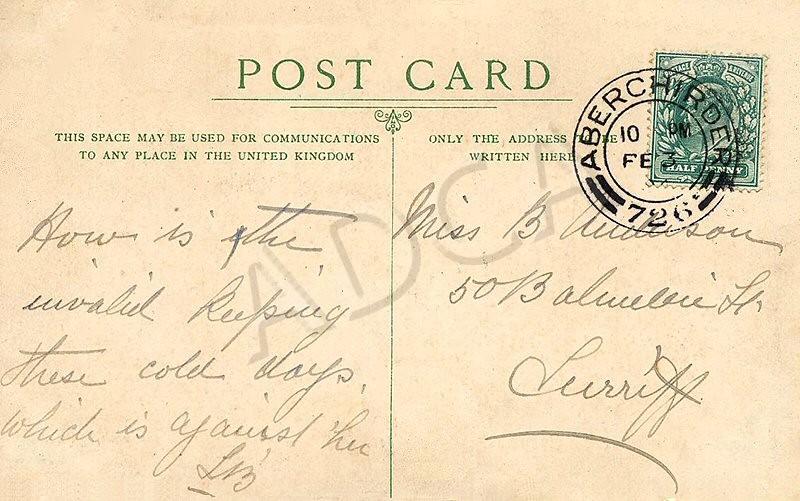 POST CARD
THIS SPACE MAY BE USED FOR COMMUNICATIONS
TO ANY PLACE IN THE UNITED KINGDOM
ONLY THE ADDRESS TO BE
WRITTEN HERE
ABERCHIRDER
10 PM
FE 3
726
POSTAGE & REVENUE
HALF PENNY
How is the
invalid keeping
these cold days,
which is against her
LB
Miss B Anderson
50 Balmellie St.
Turriff
ADCA